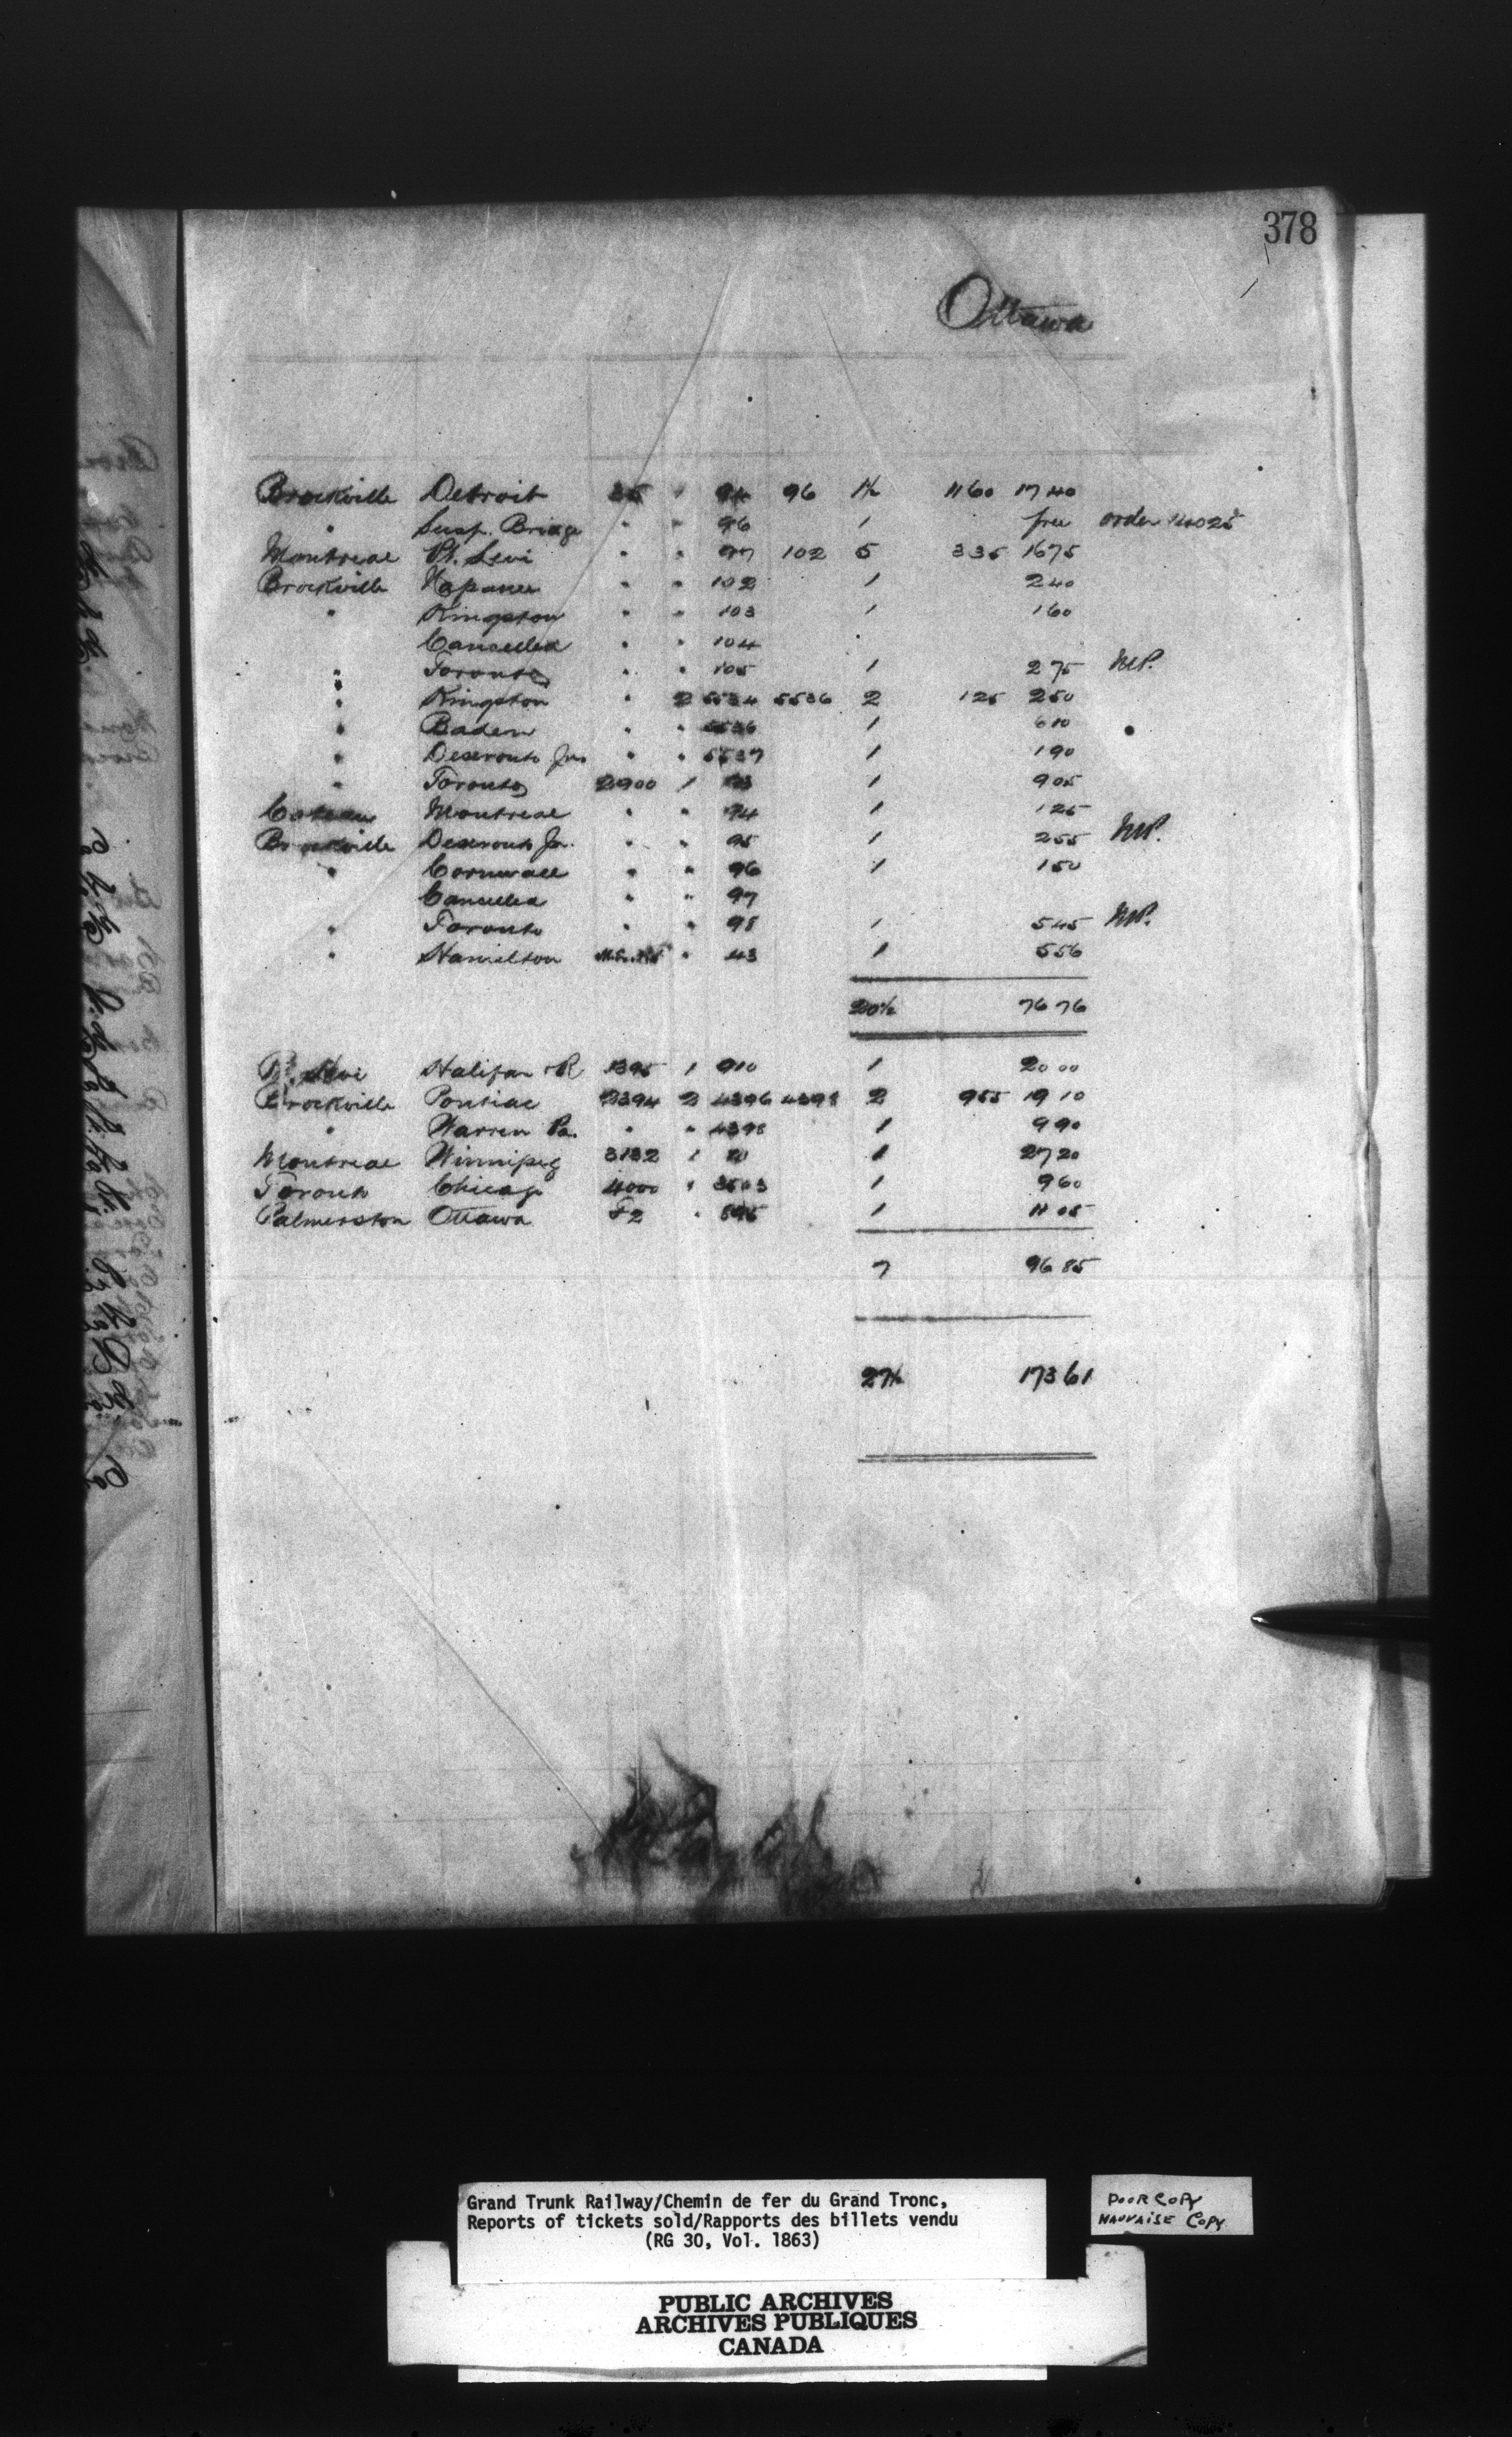 378
Ottawa
Brockville Detroit 35 " 94 96 1½ 1160 1740
" Susp. Bridge " " 96 1 free order 14025
Montreal Pt. Levi " " 97 102 5 335 1675
Brockville Napanee " " 102 1 240
" Kingston " " 103 1 160
Cancelled " " 104
" Toronto " " 105 1 275 MP.
" Kingston " 2 5534 5536 2 125 250
" Baden " " 5536 1 610
" Deseronto Jn. " " 5537 1 190
" Toronto 2900 1 93 1 905
Coteau Montreal " " 94 1 125
Brockville Deseronto Jn. " " 95 1 255 MP.
" Cornwall " " 96 1 150
Cancelled " " 97
" Toronto " " 98 1 545 MP.
" Hamilton " 43 1 556
20½ 7676
Pt. Levi Halifax R 1395 1 910 1 2000
Brockville Pontiac 2394 2 4396 4398 2 955 1910
" Warren Pa. " " 4398 1 990
Montreal Winnipeg 3132 1 1 2720
Toronto Chicago 4000 " 3503 1 960
Palmerston Ottawa F2 " 895 1 1105
7 9685
27½ 17361
Grand Trunk Railway/Chemin de fer du Grand Tronc,
Reports of tickets sold/Rapports des billets vendu
(RG 30, Vol. 1863)
POOR COPY
MAUVAISE COPY
PUBLIC ARCHIVES
ARCHIVES PUBLIQUES
CANADA